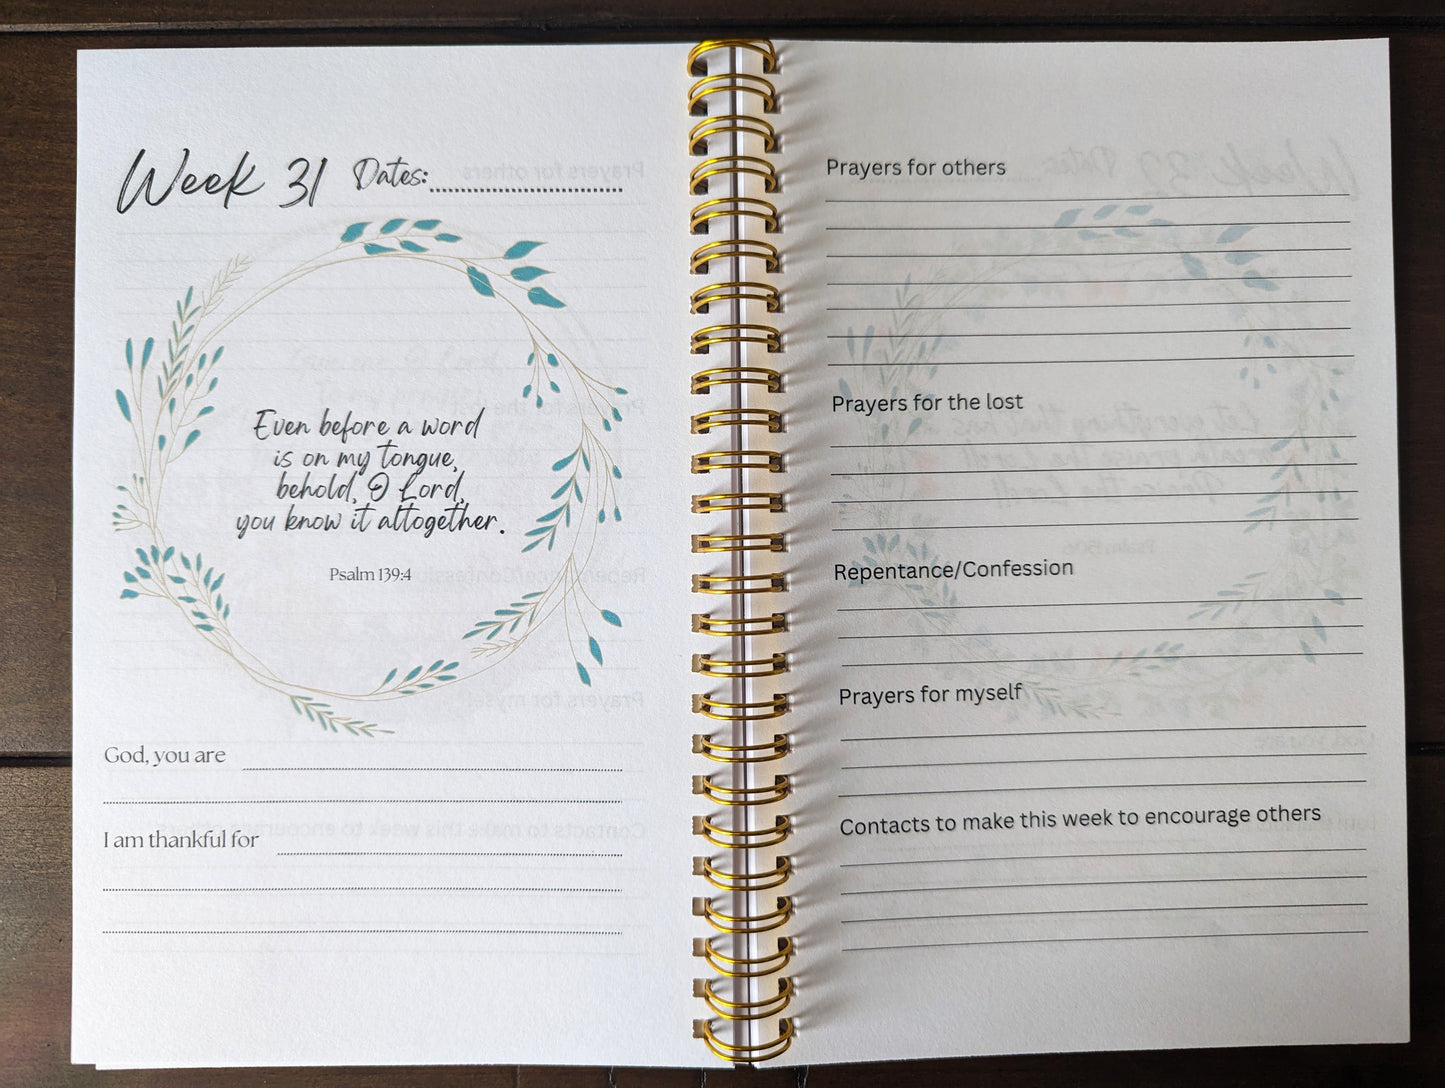 Week 31 Dates:
Even before a word
is on my tongue,
behold, O Lord,
you know it altogether.
Psalm 139:4
God, you are
I am thankful for
Prayers for others
Prayers for the lost
Repentance/Confession
Prayers for myself
Contacts to make this week to encourage others